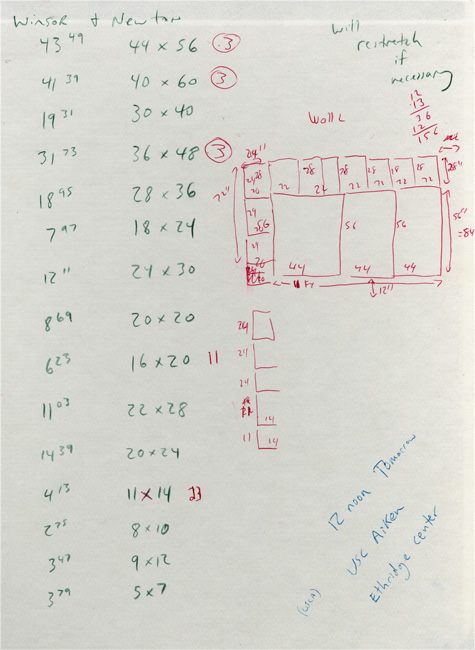 Winsor & Newton
43 49 44 x 56 3
41 39 40 x 60 3
19 31 30 x 40
31 73 36 x 48 3
18 95 28 x 36
7 97 18 x 24
12 11 24 x 30
8 69 20 x 20
6 23 16 x 20 11
11 03 22 x 28
14 39 20 x 24
4 13 11 x 14 23
2 75 8 x 10
3 47 9 x 12
3 79 5 x 7
Will
restretch
if
necessary
12
13
36
12
156
Wall
28 28 28 28 28
22 22 22 22 22
28"
72"
56 56 56
56"
=84
44 44 44
12"
24
24
24
14
11 14
12 noon Tomorrow
USC Aiken
Ethridge center
(USCA)